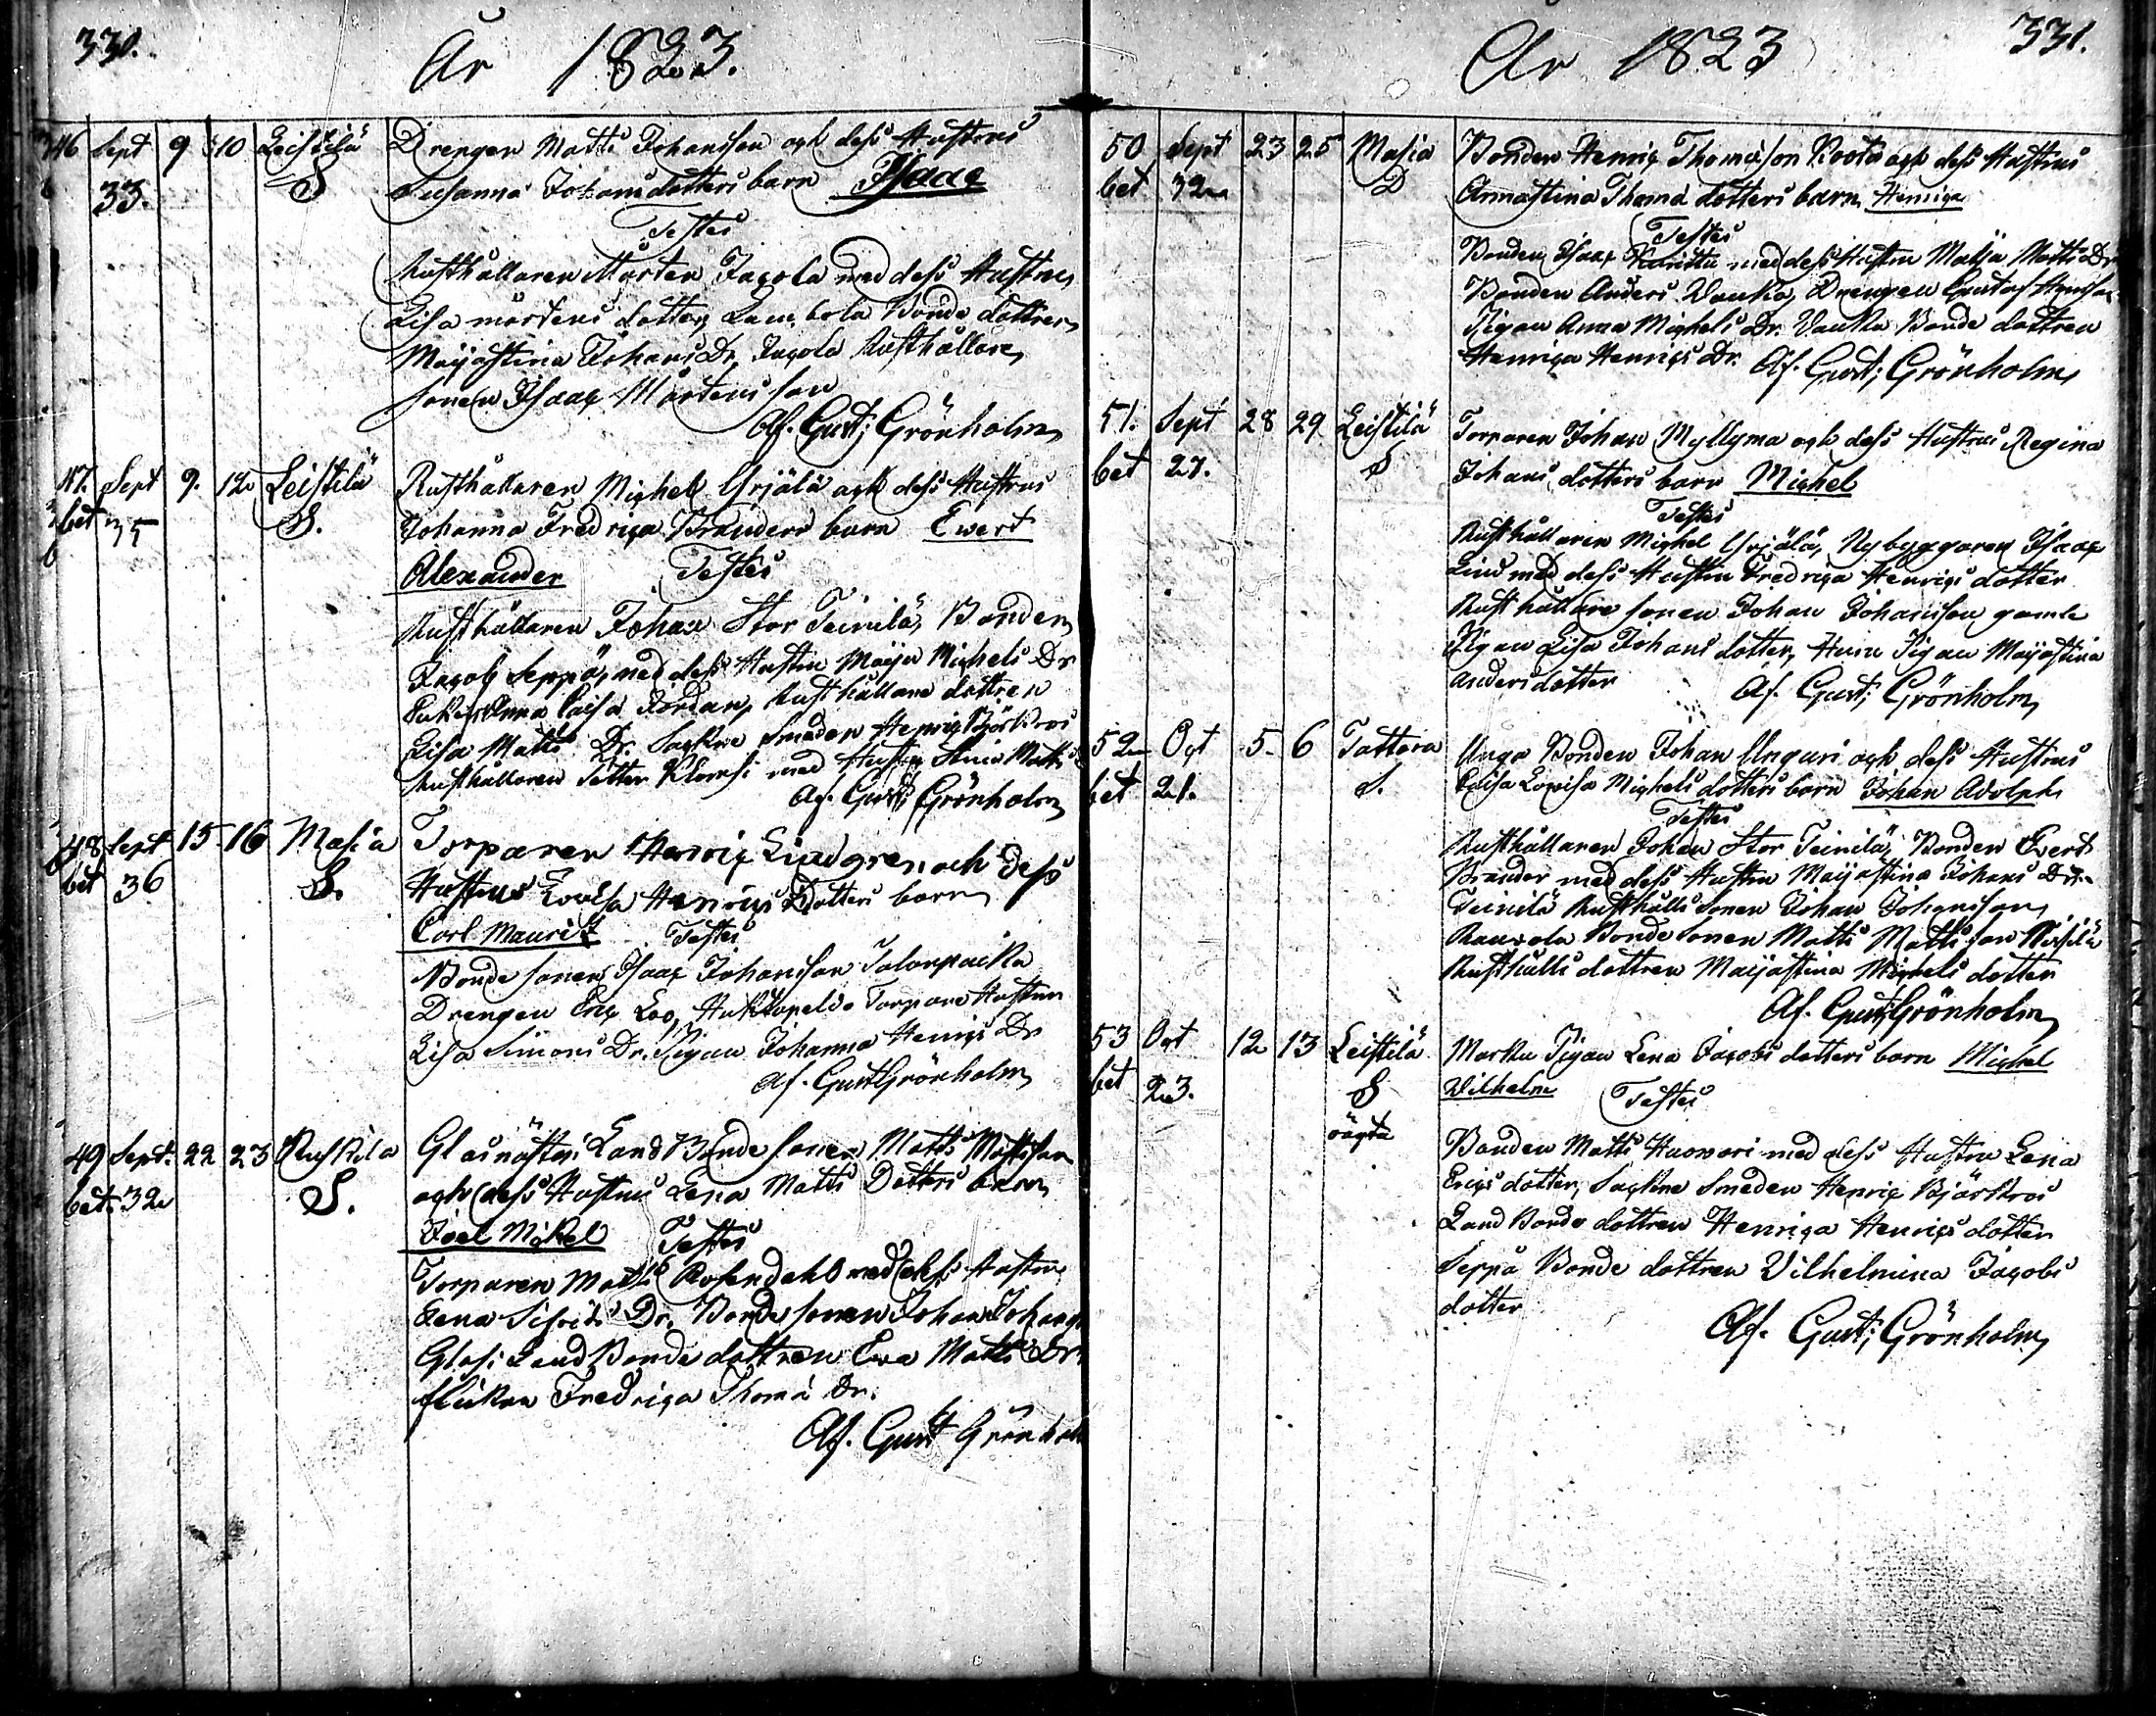 330.
År 1823.
46 Sept 9 10 Leistilä Drengen Matts Johansson och dess Hustrus
33. S Susanna Johans dotters barn Isaac
Testes
Rusthållaren Mårten Jacola med dess Hustru
Lisa Mårtens dotter, Lambola Bonde dottren
Maijastina Johans Dr, Jacola Rusthållare
sonen Isaac Mårtensson
Af. Gust; Grönholm
47. Sept 9. 12 Leistilä Rusthållaren Michel Yrjälä och dess Hustrus
bet 35 S. Johanna Fredrica Branders barn Ewert
Alexander Testes
Rusthållaren Johan Stor Teinilä, Bonden
Jacob Seppä, med dess Hustru Maija Michels Dr
Anna Caisa Jordan, Rusthållare dottren
Lisa Matts Dr. Sockne Smeden Henric Björkroos
Rusthållaren Petter Klemsi med Hustru Stina Matts
Af. Gust; Grönholm
48 Sept 15 16 Masia Torparen Henric Lindgren och dess
bet 36 S. Hustrus Lovisa Henrics Dotters barn
Carl Mauritz Testes
Bonde sonen Isaac Johansson Talonpoika
Drengen Eric Loo, Torpare Hustru
Lisa Simons Dr. Pigan Johanna Henrics Dr
Af. Gust Grönholm
49 Sept. 22 23 Ruskila Glasmästers Land Bonde sonen Matts Mattsson
bet. 32 S. och dess Hustrus Lena Matts Dotters barn
Joel Mickel Testes
Torparen Matts Rosendahl med dess Hustru
Lena Sifrids Dr. Bonde sonen Johan Johans
Glas: Land Bonde dottren Eva Matts Dr
flickan Fredrica Thoma Dr.
Af. Gust Grönholm
331.
År 1823
50 Sept 23 25 Masia Bonden Henric Thomasson Rosti och dess Hustrus
bet 32 D Annastina Thoma dotters barn Henrica
Testes
Bonden Isaac Karittu med dess Hustru Maija Matts Dr
Bonden Anders Vanka, Drengen Gustaf Henricsson
Pigan Anna Michels Dr. Vanka Bonde dottren
Henrica Henrics Dr. Af. Gust; Grönholm
51. Sept 28 29 Leistilä Torparen Johan Myllyma och dess Hustrus Regina
bet 27. S Johans dotters barn Michel
Testes
Rusthållaren Michel Yrjälä, Nybyggaren Isaac
Lind med dess Hustru Fredrica Henrics dotter
Rusthållare sonen Johan Johansson gamle
Pigan Lisa Johans dotter, Pigan Maijastina
Anders dotter Af. Gust; Grönholm
52 Oct 5. 6 Tattara Unga Bonden Johan Unguri och dess Hustrus
bet 21. S. Caisa Lovisa Michels dotters barn Johan Adolph
Testes
Rusthållaren Johan Stor Teinilä, Bonden Evert
Brander med dess Hustru Maijastina Johans Dr.
Teinilä Rusthålls sonen Johan Johansson
Bonde sonen Matts Mattsson
Rusthålls dottren Maijastina Michels dotter
Af. Gust; Grönholm
53 Oct 12 13 Leistilä Marku Pigan Lena Jacobs dotters barn Michel
bet 23. S Wilhelm Testes
oägta
Bonden Matts Haovari med dess Hustru Lena
Erics dotter, Sockne Smeden Henric Björkroos
Land Bonde dottren Henrica Henrics dotter
Seppä Bonde dottren Vilhelmina Jacobs
dotter
Af. Gust; Grönholm